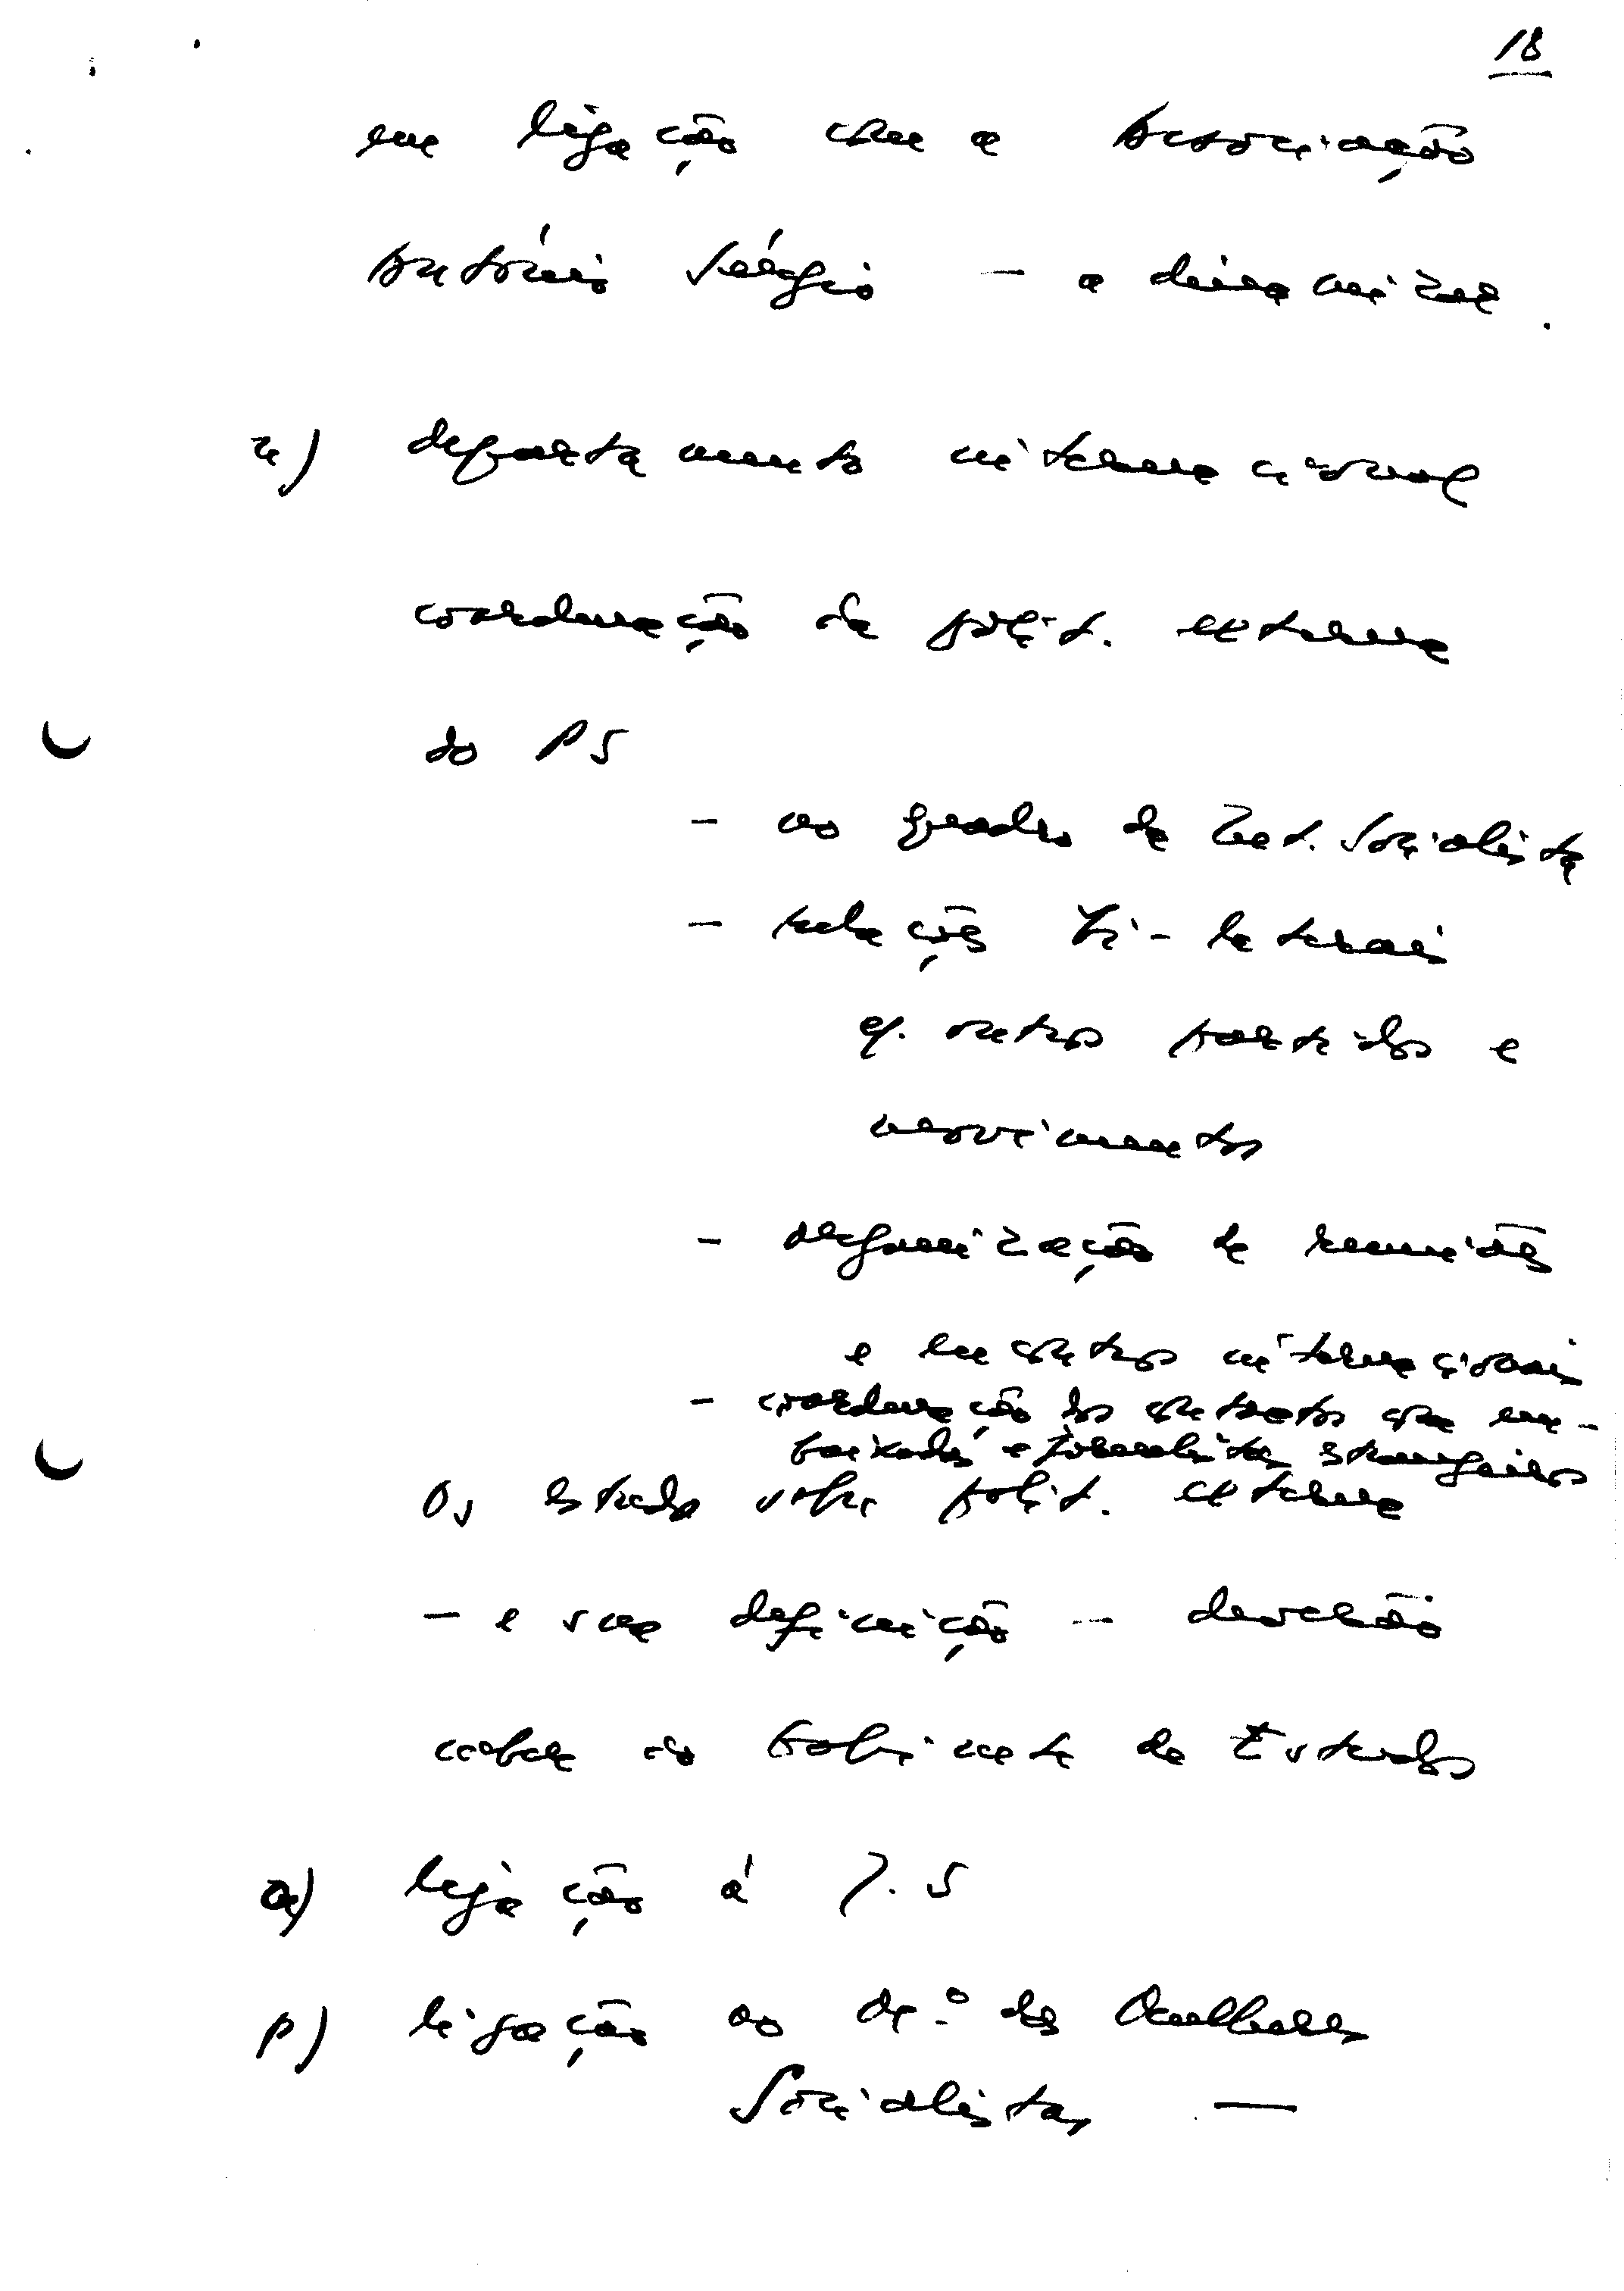 18
em ligação com a Associação
António Sérgio – a dinamizar.
n) departamento internacional
coordenação da polít. externa
do PS
- no quadro da Int. Socialista
- relações bi-laterais
c/. outros partidos e
movimentos
- organização de reuniões
e encontros internacionais
- coordenação dos contactos com em-
baixadas e jornalistas estrangeiros
Os estudos sobre polít. externa
– e sua definição – deverão
caber ao Gabinete de Estudos
o) ligação à J.S
p) ligação ao Dep.º das Mulheres
Socialistas —